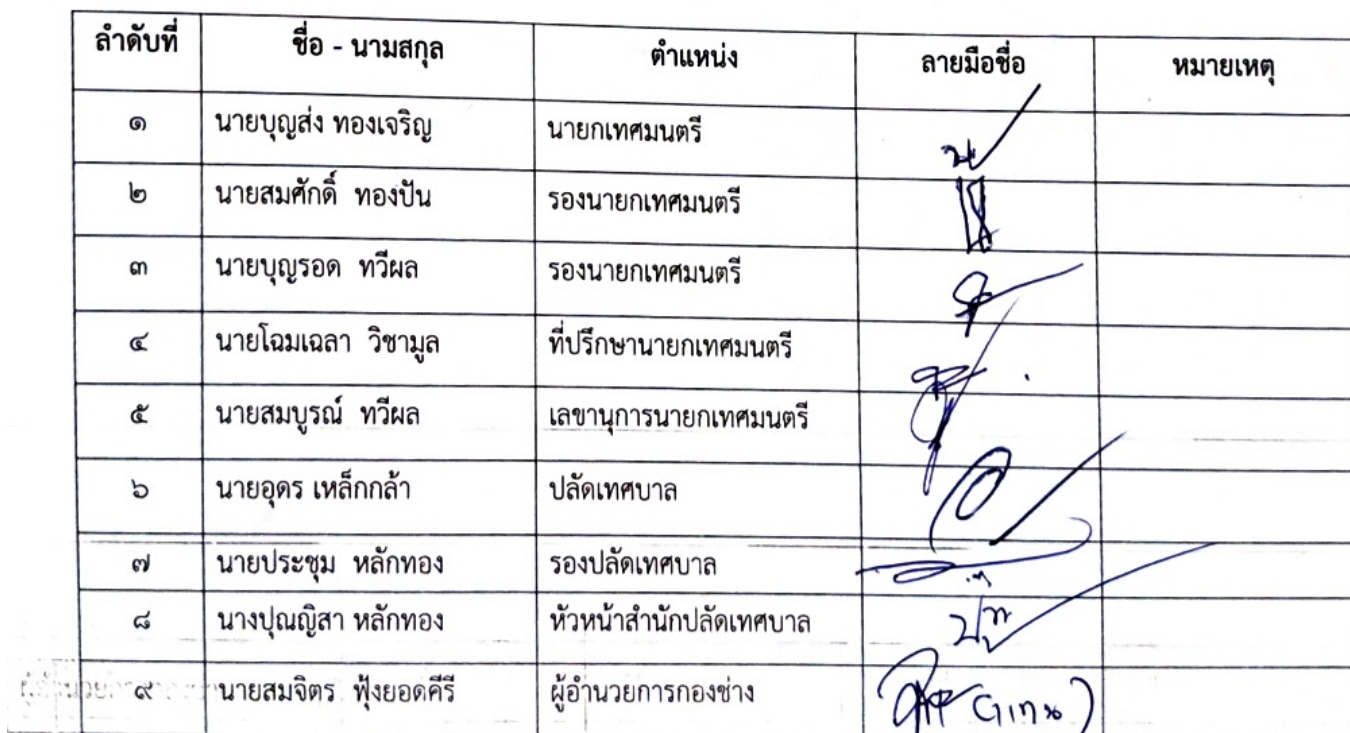 ลำดับที่ ชื่อ - นามสกุล ตำแหน่ง ลายมือชื่อ หมายเหตุ
๑ นายบุญส่ง ทองเจริญ นายกเทศมนตรี
๒ นายสมศักดิ์ ทองปัน รองนายกเทศมนตรี
๓ นายบุญรอด ทวีผล รองนายกเทศมนตรี
๔ นายโฉมเฉลา วิชามูล ที่ปรึกษานายกเทศมนตรี
๕ นายสมบูรณ์ ทวีผล เลขานุการนายกเทศมนตรี
๖ นายอุดร เหล็กกล้า ปลัดเทศบาล
๗ นายประชุม หลักทอง รองปลัดเทศบาล
๘ นางปุณญิสา หลักทอง หัวหน้าสำนักปลัดเทศบาล
๙ นายสมจิตร ฟุ้งยอดคีรี ผู้อำนวยการกองช่าง